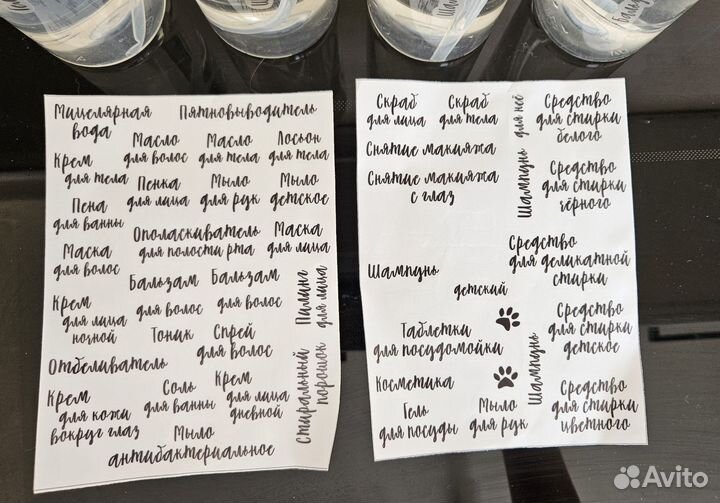 Шампунь
Бальзам
Мицелярная
вода
Пятновыводитель
Крем
для тела
Масло
для волос
Масло
для тела
Лосьон
для тела
Пена
для ванны
Пенка
для лица
Мыло
для рук
Мыло
детское
Маска
для волос
Ополаскиватель
для полости рта
Маска
для лица
Бальзам
для волос
Бальзам
для волос
Пилинг
для лица
Крем
для лица
ночной
Тоник
Спрей
для волос
Отбеливатель
Крем
для кожи
вокруг глаз
Соль
для ванны
Крем
для лица
дневной
Стиральный
порошок
Мыло
антибактериальное
Скраб
для лица
Скраб
для тела
Шампунь для неё
Средство
для стирки
белого
Снятие макияжа
Снятие макияжа
с глаз
Средство
для стирки
чёрного
Средство
для деликатной
стирки
Шампунь
детский
Таблетки
для посудомойки
Шампунь
Средство
для стирки
детское
Косметика
Гель
для посуды
Мыло
для рук
Средство
для стирки
цветного
Avito